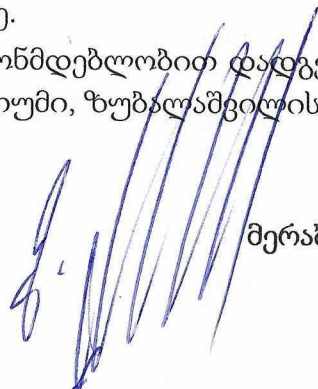 ე.
ონმდებლობით დადგე
იუმი, ზუბალაშვილის
მერაბ